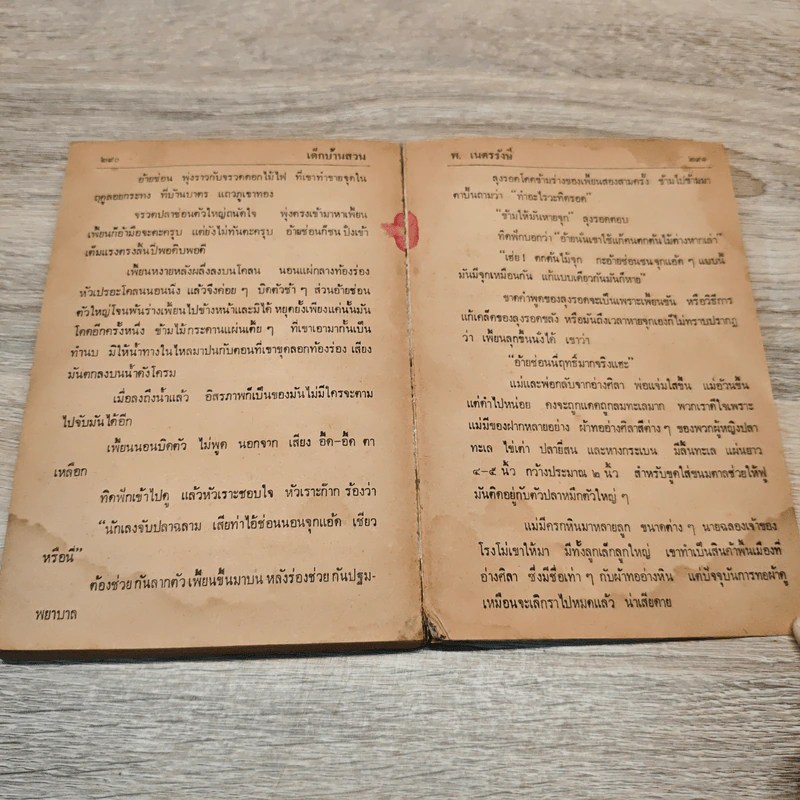 ๒๙๐ เด็กบ้านสวน
อ้ายช่อน พุ่งราวกับจรวดดอกไม้ไฟ ที่เขาทำขายจุดใน
ฤดูลอยกระทง ที่บ้านบาตร แถวภูเขาทอง
จรวดปลาช่อนตัวใหญ่ถนัดใจ พุ่งตรงเข้ามาหาเพี้ยน
เพี้ยนก็อ้ามือจะตะครุบ แต่ยังไม่ทันตะครุบ อ้ายช่อนก็ชนปึงเข้า
เต็มแรงตรงลิ้นปี่พอดิบพอดี
เพี้ยนหงายหลังผลึ่งลงบนโคลน นอนแผ่กลางท้องร่อง
หัวเปรอะโคลนนอนนิ่ง แล้วจึงค่อย ๆ บิดตัวช้า ๆ ส่วนอ้ายช่อน
ตัวใหญ่โจนพ้นร่างเพี้ยนไปข้างหน้าและมิได้ หยุดยั้งเพียงแค่นั้นมัน
โดดอีกครั้งหนึ่ง ข้ามไม้กระดานแผ่นเตี้ย ๆ ที่เขาเอามากั้นเป็น
ทำนบ มิให้น้ำทางในไหลมาปนกับตอนที่เขาขุดลอกท้องร่อง เสียง
มันตกลงบนน้ำดังโครม
เมื่อลงถึงน้ำแล้ว อิสรภาพก็เป็นของมันไม่มีใครจะตาม
ไปจับมันได้อีก
เพี้ยนนอนบิดตัว ไม่พูด นอกจาก เสียง อี๊ด-อี๊ด ตา
เหลือก
ทิดพักเข้าไปดู แล้วหัวเราะชอบใจ หัวเราะก๊าก ร้องว่า
“นักเลงจับปลาฉลาม เสียท่าไอ้ช่อนนอนจุกแอ้ด เชียว
หรือนี่”
ต้องช่วยกันลากตัวเพี้ยนขึ้นมาบน หลังร่องช่วยกันปฐม-
พยาบาล
พ. เนตรรังษี ๒๙๑
ลุงรอดโดดข้ามร่างของเพี้ยนสองสามครั้ง ข้ามไปข้ามมา
ตาปั้นถามว่า “ทำอะไรวะทิดรอด”
“ข้ามให้มันหายจุก” ลุงรอดตอบ
ทิดพักบอกว่า “อ้ายนั่นเขาใช้แก้คนตกต้นไม้ต่างหากเล่า”
“เฮ่ย ! ตกต้นไม้จุก กะอ้ายช่อนชนจุกแอ้ด ๆ แบบนี้
มันมีจุกเหมือนกัน แก้แบบเดียวกันมันก็หาย”
ขาดคำพูดของลุงรอดจะเป็นเพราะเพี้ยนขัน หรือวิธีการ
แก้เคล็ดของลุงรอดขลัง หรือมันถึงเวลาหายจุกเองก็ไม่ทราบปรากฏ
ว่า เพี้ยนลุกขึ้นนั่งได้ เขาว่า
“อ้ายช่อนนี่ฤทธิ์มากจริงแฮะ”
แม่และพ่อกลับจากอ่างศิลา พ่อแจ่มใสขึ้น แม่อ้วนขึ้น
แต่ดำไปหน่อย คงจะถูกแดดถูกลมทะเลมาก พวกเราดีใจเพราะ
แม่มีของฝากหลายอย่าง ผ้าทออ่างศิลาสีต่าง ๆ ของพวกผู้หญิงปลา
ทะเล ไข่เต่า ปลายี่สน และหางกระเบน มีลิ้นทะเล แผ่นยาว
๔-๕ นิ้ว กว้างประมาณ ๒ นิ้ว สำหรับขูดใส่ขนมตาลช่วยให้ฟู
มันติดอยู่กับตัวปลาหมึกตัวใหญ่ ๆ
แม่มีครกหินมาหลายลูก ขนาดต่าง ๆ นายฉลองเจ้าของ
โรงโม่เขาให้มา มีทั้งลูกเล็กลูกใหญ่ เขาทำเป็นสินค้าพื้นเมืองที่
อ่างศิลา ซึ่งมีชื่อเท่า ๆ กับผ้าทออ่างหิน แต่ปัจจุบันการทอผ้าดู
เหมือนจะเลิกราไปหมดแล้ว น่าเสียดาย